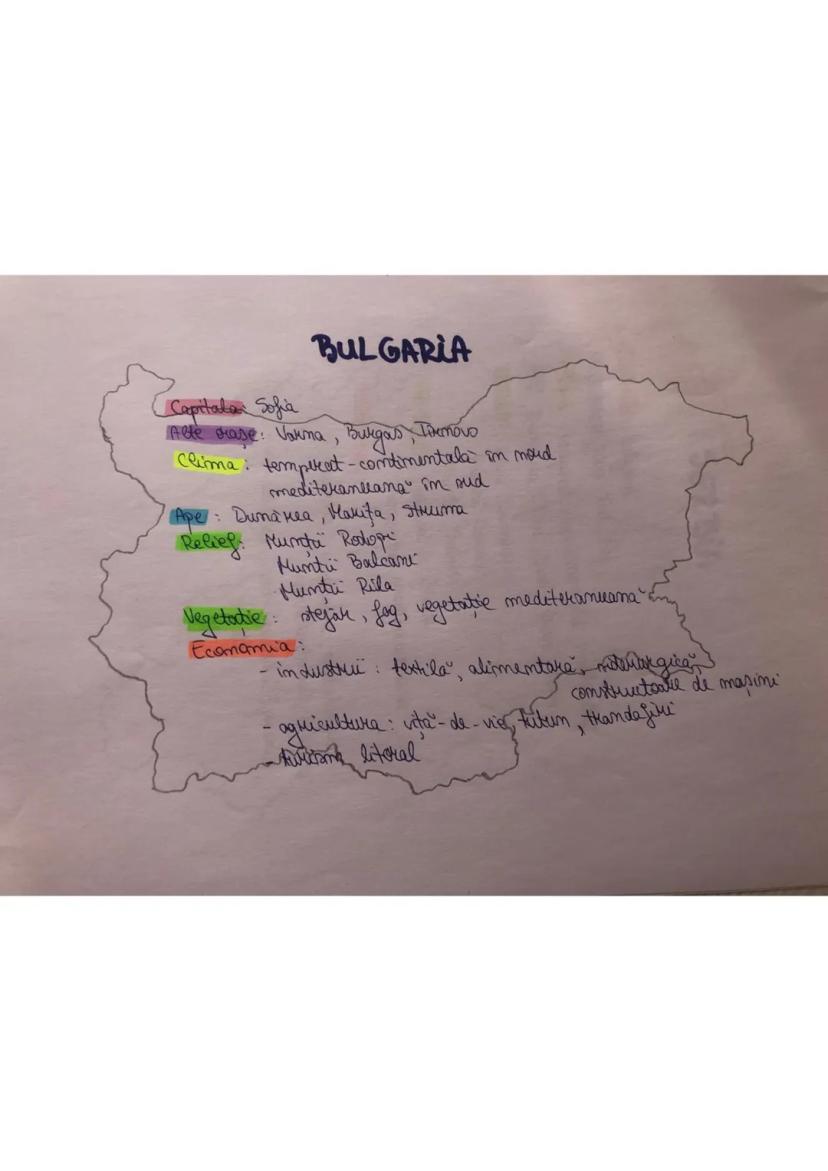 BULGARIA
Capitala: Sofia
Alte orașe: Varna, Burgas, Tîrnovo
Clima: temperat-continentală în nord
mediteraneană în sud
Ape: Dunărea, Marița, Struma
Relief: Munții Rodopi
Munții Balcani
Munții Rila
Vegetație: stejar, fag, vegetație mediteraneană
Economia:
- industrii: textilă, alimentară, siderurgică,
constructoare de mașini
- agricultura: viță-de-vie, tutun, trandafiri
- turism litoral